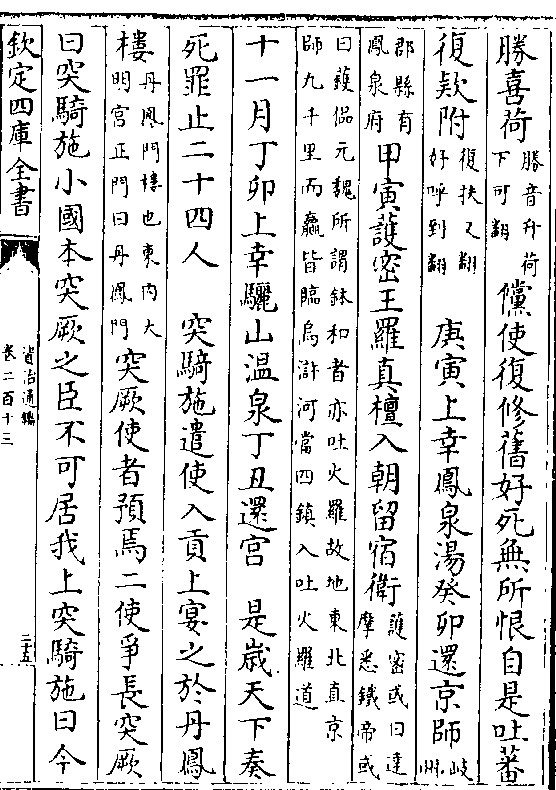 勝喜荷勝音升荷下可翻儻使復修舊好死無所恨自是吐蕃
復欵附復扶又翻好呼到翻 庚寅上幸鳳泉湯癸卯還京師岐州
郡縣有鳳泉府 甲寅護密王羅真檀入朝留宿衛護密或曰達摩悉鐵帝或
曰鑊偘元魏所謂鉢和者亦吐火羅故地東北直京
師九千里而羸皆臨烏滸河當四鎮入吐火羅道
十一月丁卯上幸驪山温泉丁丑還宫 是歲天下奏
死罪止二十四人 突騎施遣使入貢上宴之於丹鳳
樓丹鳳門樓也東内大明宫正門曰丹鳳門突厥使者預焉二使爭長突厥
曰突騎施小國本突厥之臣不可居我上突騎施曰今
欽定四庫全書
資治通鑑
卷二百十三
二十五